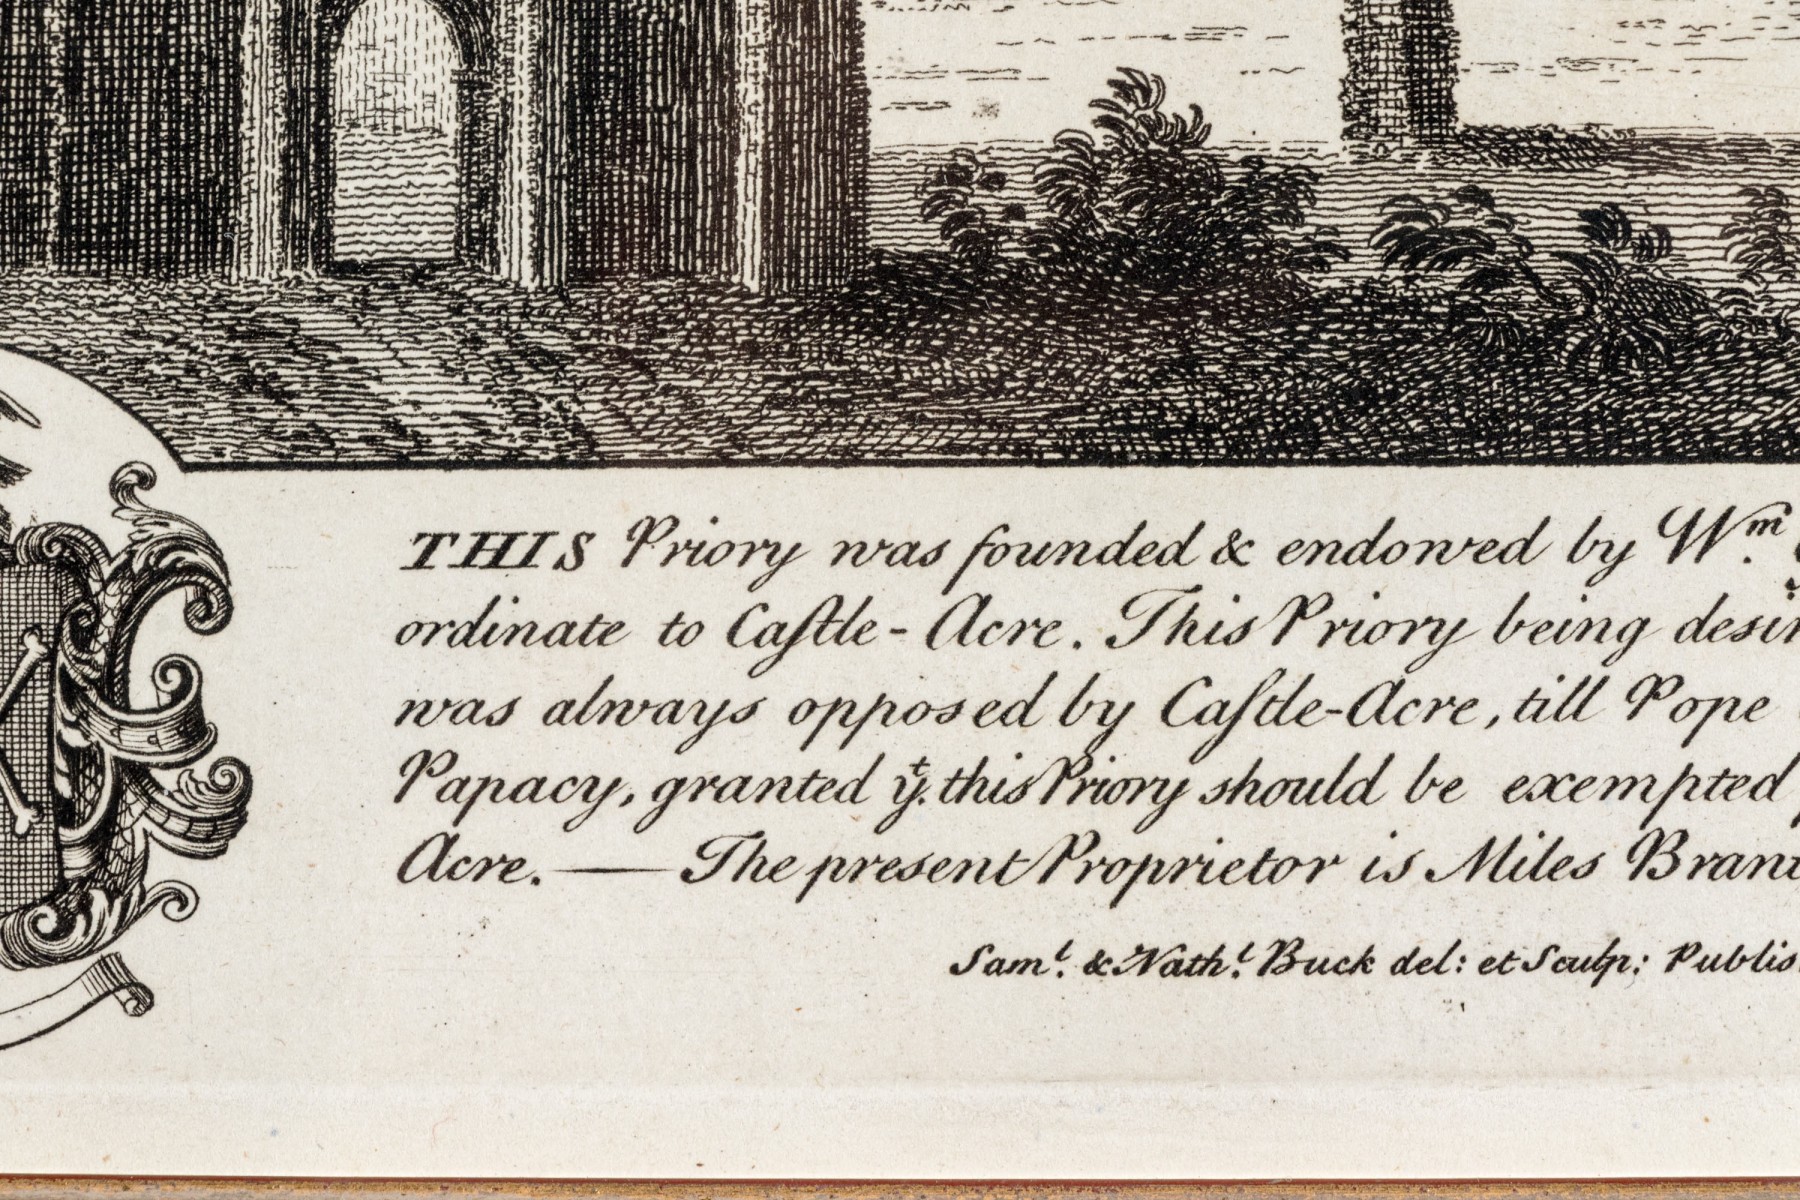 THIS Priory was founded & endowed by Wm.
ordinate to Caſtle-Acre. This Priory being desir
was always opposed by Caſtle-Acre, till Pope
Papacy, granted yt. this Priory should be exempted
Acre. — The present Proprietor is Miles Bran
Saml. & Nathl. Buck del: et Sculp: Publis